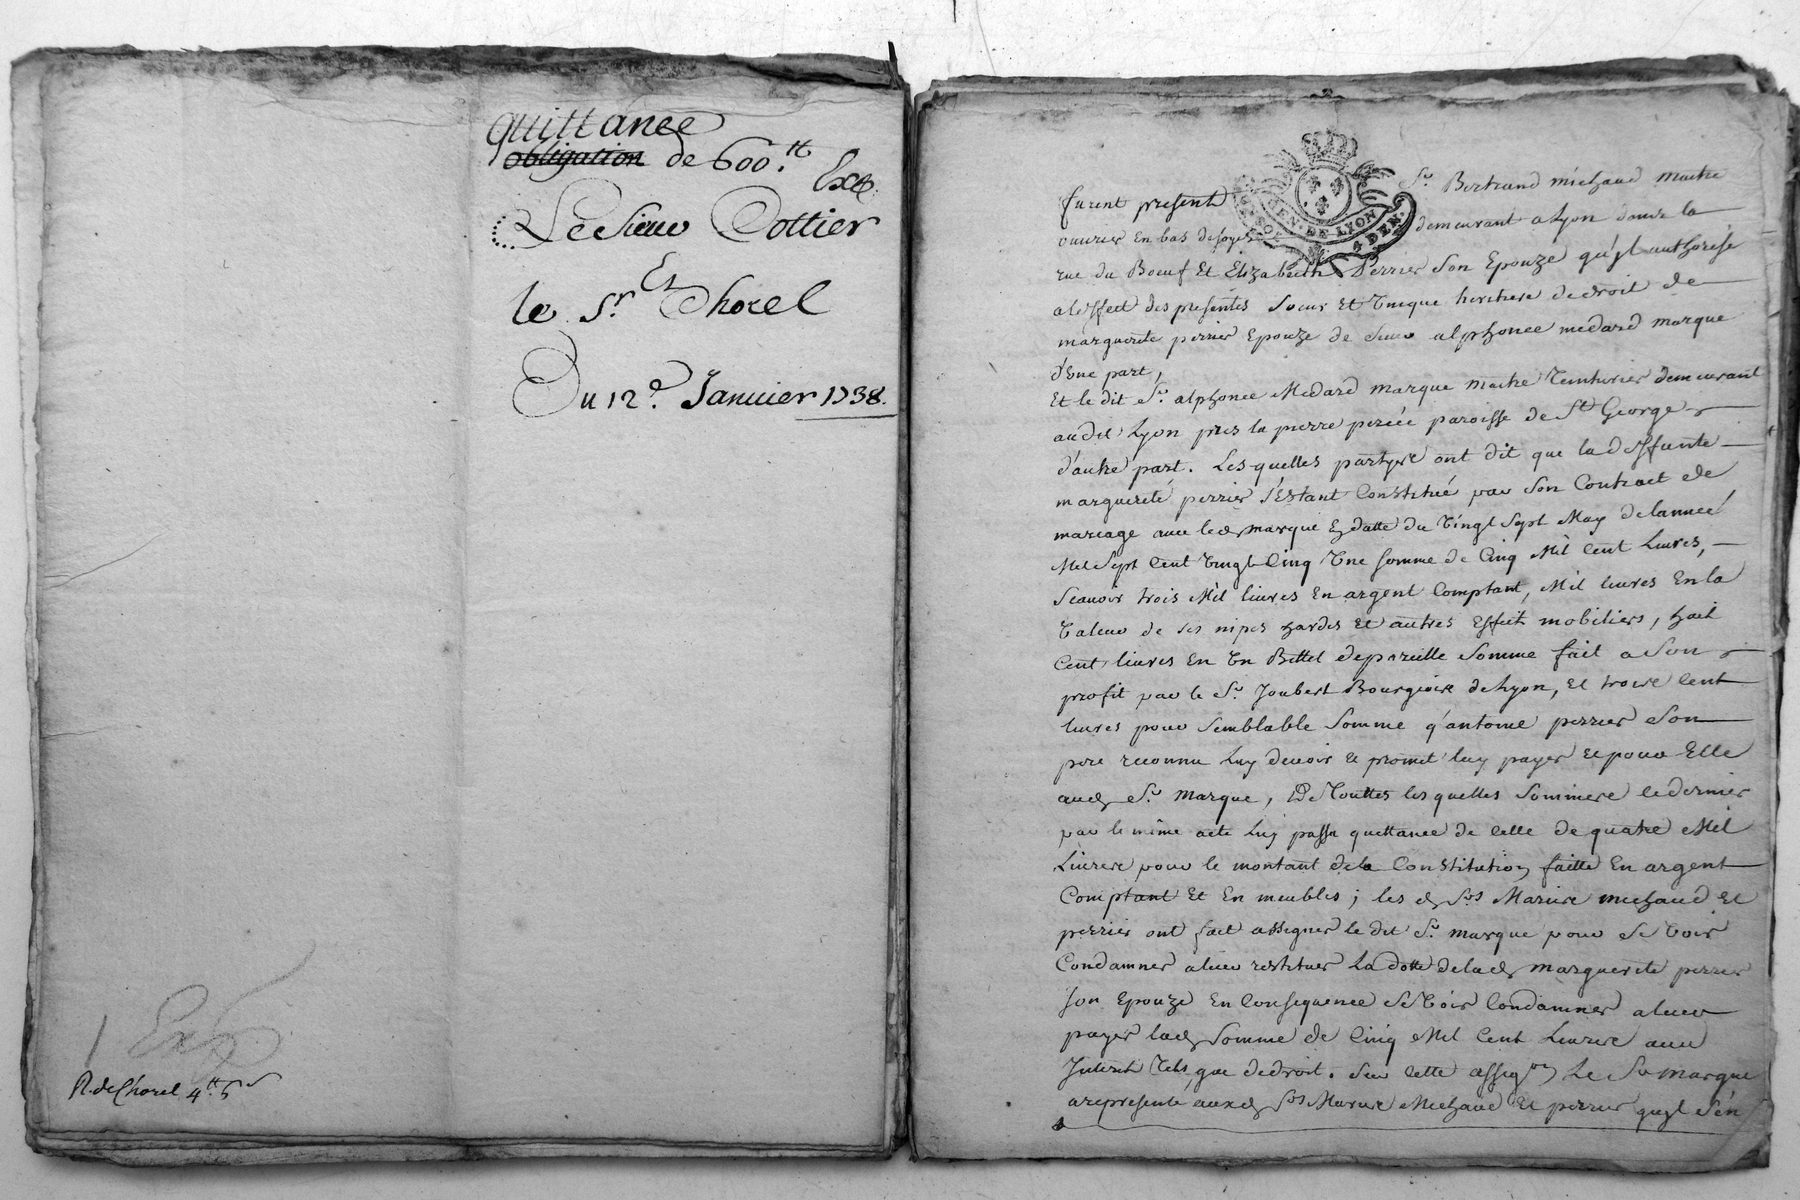 quittance
obligation de 600.tt
Exp.
Le Sieur Cottier
Et
le Sr. Chorel
Du 12e. Janvier 1738.
Exp
R. de Chorel 4tt 5s
GEN. DE LYON
4 DEN.
furent presents Sr. Bertrand michaud maitre
ouvrier En bas de soyes demeurant a Lyon dans la
rue du Boeuf Et Elizabeth Perrier son Epouze qu'jl authorise
a leffect des presentes soeur Et Unique heritiere de droit de
marguerite perrier Epouze de sieur alphonce medard marque
d'une part,
Et le dit Sr. alphonce Medard marque maitre Teinturier demeurant
audit Lyon pres la pierre percée paroisse de St George
d'autre part. Lesquelles partyes ont dit que la deffunte
marguerite perrier s'Estant Constitué par son Contract de
mariage avec led. marque En datte du Vingt sept May de lanneé
Mil Sept Cent Vingt Cinq Une somme de Cinq Mil Cent Livres,
Scavoir trois Mil livres En argent Comptant, Mil livres En la
Valeur de ses nipes hardes et autres Effets mobiliers, huit
Cent livres En Un Billet de pareille Somme fait a Son
profit par le Sr. Joubert Bourgeois de Lyon, et trois Cent
livres pour semblable somme q'antoine perrier son
pere reconnu Luy devoir et promit luy payer et pour Elle
aud. Sr. marque, De Touttes lesquelles sommes le dernier
par le même acte Luy passa quittance de Celle de quatre Mil
Livres pour le montant de la Constitution faitte En argent
Comptant Et En meubles ; les d. Srs Mariés michaud et
perrier ont fait assigner le dit Sr. marque pour se voir
Condamner a leur restituer La dotte de lad. marguerite perrier
son Epouze En Consequence se Voir Condamner a leur
payer lad. somme de Cinq Mil Cent Livres avec
Interets Tels que de droit. sur Cette assigon Le Sr marque
a representé auxd. Srs Mariés Michaud et perrier quil s'en